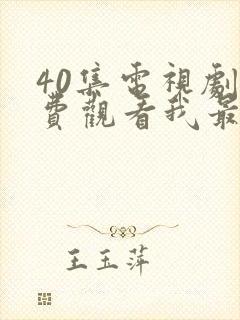 40集電視劇
費觀看我最
王玉萍